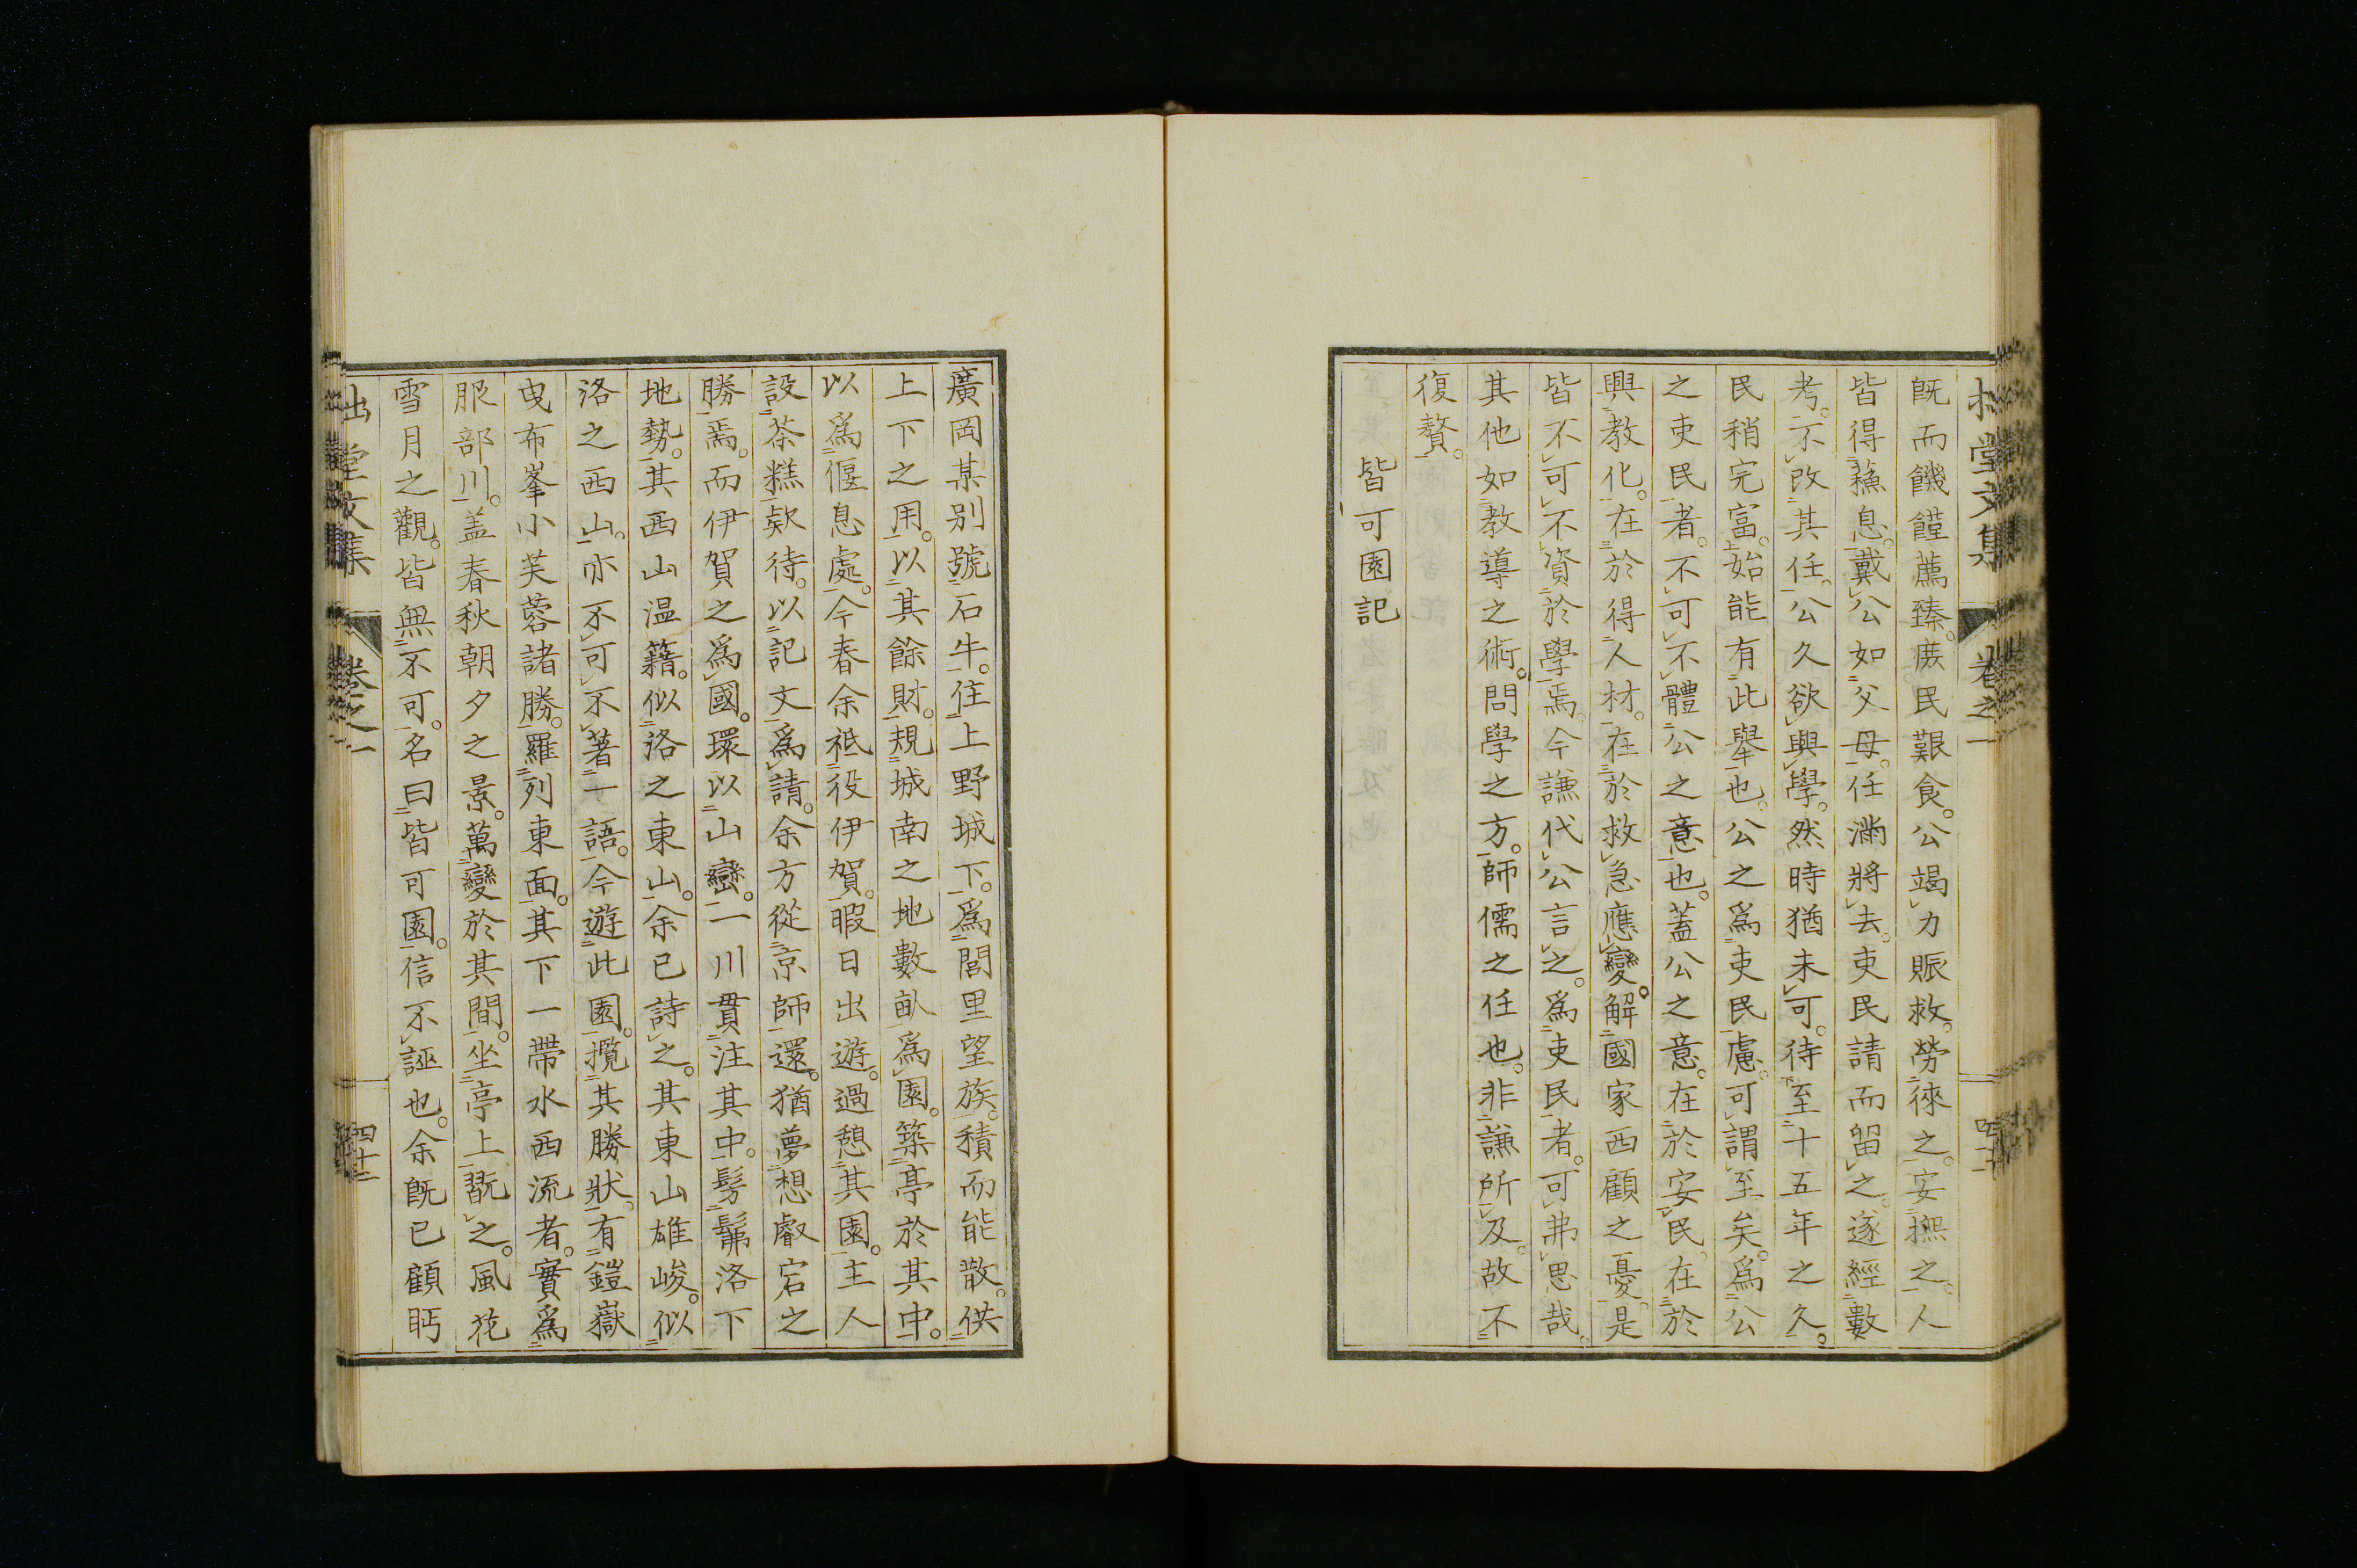 拙堂文集 卷之一 四十一
既而饑饉薦臻。蔟民艱食。公竭力賑救。勞徠之。安撫之。人
皆得蘓息。戴公如父母。任滿將去。吏民請而留之。遂經數
考。不改其任。公久欲興學。然時猶未可。待至十五年之久。
民稍完富。始能有此舉也。公之爲吏民慮。可謂至矣。爲公
之吏民者。不可不體公之意也。蓋公之意。在於安民。在於
興教化。在於得人材。在於救急應變。解國家西顧之憂。是
皆不可不資於學焉。今謙代公言之。爲吏民者。可弗思哉。
其他如教導之術。問學之方。師儒之任也。非謙所及。故不
復贅。
皆可園記
廣岡某別號石牛。住上野城下。爲閭里望族。積而能散。供
上下之用。以其餘財。規城南之地數畝爲園。築亭於其中。
以爲偃息處。今春余祗役伊賀。暇日出遊。過憩其園。主人
設茶糕欵待。以記文爲請。余方從京師還。猶夢想叡宕之
勝焉。而伊賀之爲國。環以山巒。一川貫注其中。髣髴洛下
地勢。其西山温籍。似洛之東山。余已詩之。其東山雄峻。似
洛之西山。亦不可不著一語。今遊此園。攬其勝狀。有鎧嶽
曳布峯小芙蓉諸勝。羅列東面。其下一帶水西流者。實爲
服部川。蓋春秋朝夕之景。萬變於其間。坐亭上翫之。風花
雪月之觀。皆無不可。名曰皆可園。信不誣也。余既已顧眄
拙堂文集 卷之一 四十二